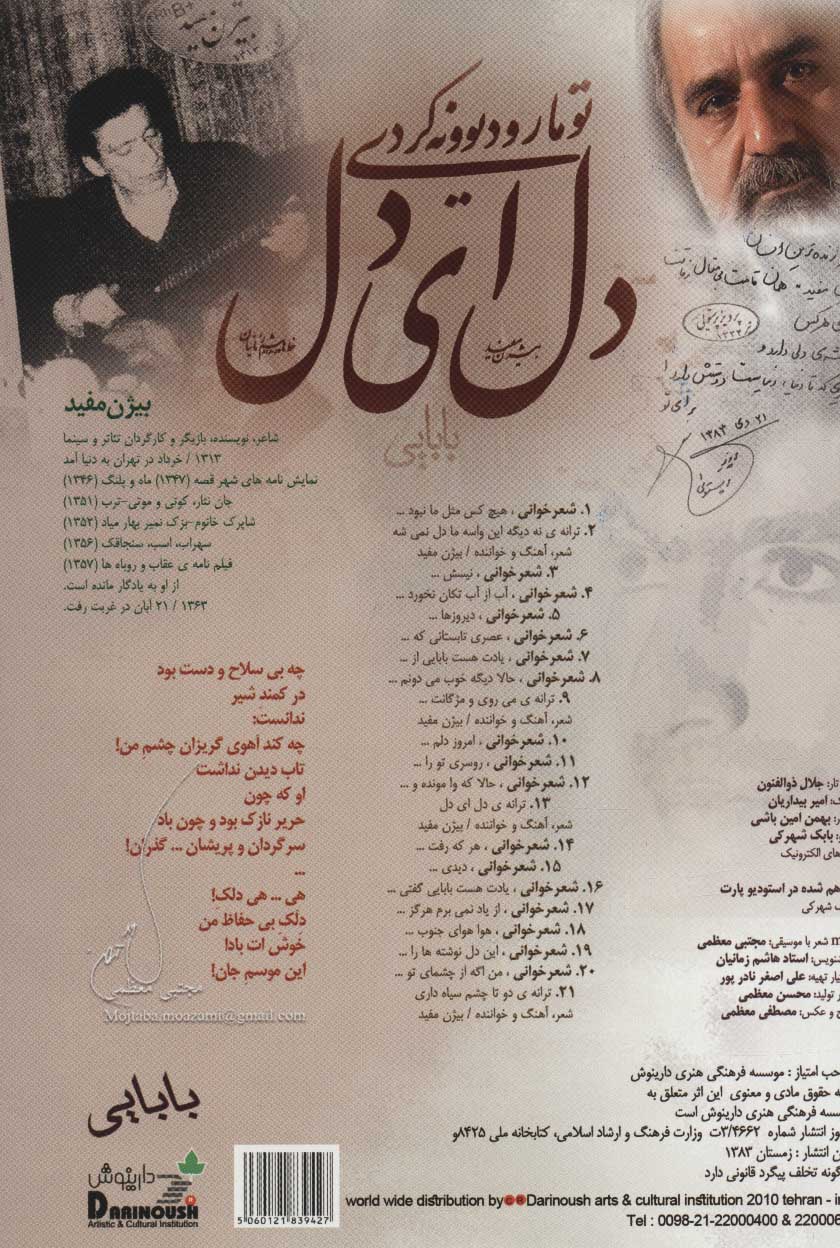 بیژن مفید
تو ما رو دیوونه کردی
دل ای دل
بیژن مفید
بابایی
زنده‌ترین انسان
هرکس
برای تو
۲۱ دی ۱۳۸۳
بیژن مفید
شاعر، نویسنده، بازیگر و کارگردان تئاتر و سینما
۱۳۱۳ / خرداد در تهران به دنیا آمد
نمایش نامه های شهر قصه (۱۳۴۷) ماه و پلنگ (۱۳۴۶)
جان نثار، کوتی و موتی-ترب (۱۳۵۱)
شاپرک خانوم-بزک نمیر بهار میاد (۱۳۵۲)
سهراب، اسب، سنجاقک (۱۳۵۶)
فیلم نامه ی عقاب و روباه ها (۱۳۵۷)
از او به یادگار مانده است.
۱۳۶۳ / ۲۱ آبان در غربت رفت.
۱. شعرخوانی ، هیچ کس مثل ما نبود ...
۲. ترانه ی نه دیگه این واسه ما دل نمی شه
شعر، آهنگ و خواننده / بیژن مفید
۳. شعرخوانی ، نیستش ...
۴. شعرخوانی ، آب از آب تکان نخورد ...
۵. شعرخوانی ، دیروزها ...
۶. شعرخوانی ، عصری تابستانی که ...
۷. شعرخوانی ، یادت هست بابایی از ...
۸. شعرخوانی ، حالا دیگه خوب می دونم ...
۹. ترانه ی می روی و مژگانت ...
شعر، آهنگ و خواننده / بیژن مفید
۱۰. شعرخوانی ، امروز دلم ...
۱۱. شعرخوانی ، روسری تو را ...
۱۲. شعرخوانی ، حالا که وا مونده و ...
۱۳. ترانه ی دل ای دل
شعر، آهنگ و خواننده / بیژن مفید
۱۴. شعرخوانی ، هر که رفت ...
۱۵. شعرخوانی ، دیدی ...
۱۶. شعرخوانی ، یادت هست بابایی گفتی ...
۱۷. شعرخوانی ، از یاد نمی برم هرگز ...
۱۸. شعرخوانی ، هوا هوای جنوب ...
۱۹. شعرخوانی ، این دل نوشته ها را ...
۲۰. شعرخوانی ، من اگه از چشمای تو ...
۲۱. ترانه ی دو تا چشم سیاه داری
شعر، آهنگ و خواننده / بیژن مفید
چه بی سلاح و دست بود
در کمندِ شیر
ندانست:
چه کند آهوی گریزان چشم من!
تاب دیدن نداشت
او که چون
حریر نازک بود و چون باد
سرگردان و پریشان ... گذران!
...
هی ... هی دلک!
دلک بی حفاظ من
خوش ات بادا
این موسم جان!
مجتبی معظمی
Mojtaba.moazami@gmail.com
تار: جلال ذوالفنون
امیر بیداریان
بهمن امین باشی
بابک شهرکی
های الکترونیک
هم شده در استودیو پارت
شهرکی
شعر با موسیقی: مجتبی معظمی
شنویس: استاد هاشم زمانیان
یار تهیه: علی اصغر نادر پور
تولید: محسن معظمی
ح و عکس: مصطفی معظمی
حب امتیاز : موسسه فرهنگی هنری دارینوش
ه حقوق مادی و معنوی این اثر متعلق به
سسه فرهنگی هنری دارینوش است
وز انتشار شماره ۳/۴۶۶۲ت وزارت فرهنگ و ارشاد اسلامی، کتابخانه ملی ۸۴۲۵و
ن انتشار : زمستان ۱۳۸۳
گونه تخلف پیگرد قانونی دارد
بابایی
دارینوش
DARINOUSH
Artistic & Cultural Institution
5 060121 839427
world wide distribution by Darinoush arts & cultural institution 2010 tehran - ir
Tel : 0098-21-22000400 & 220008